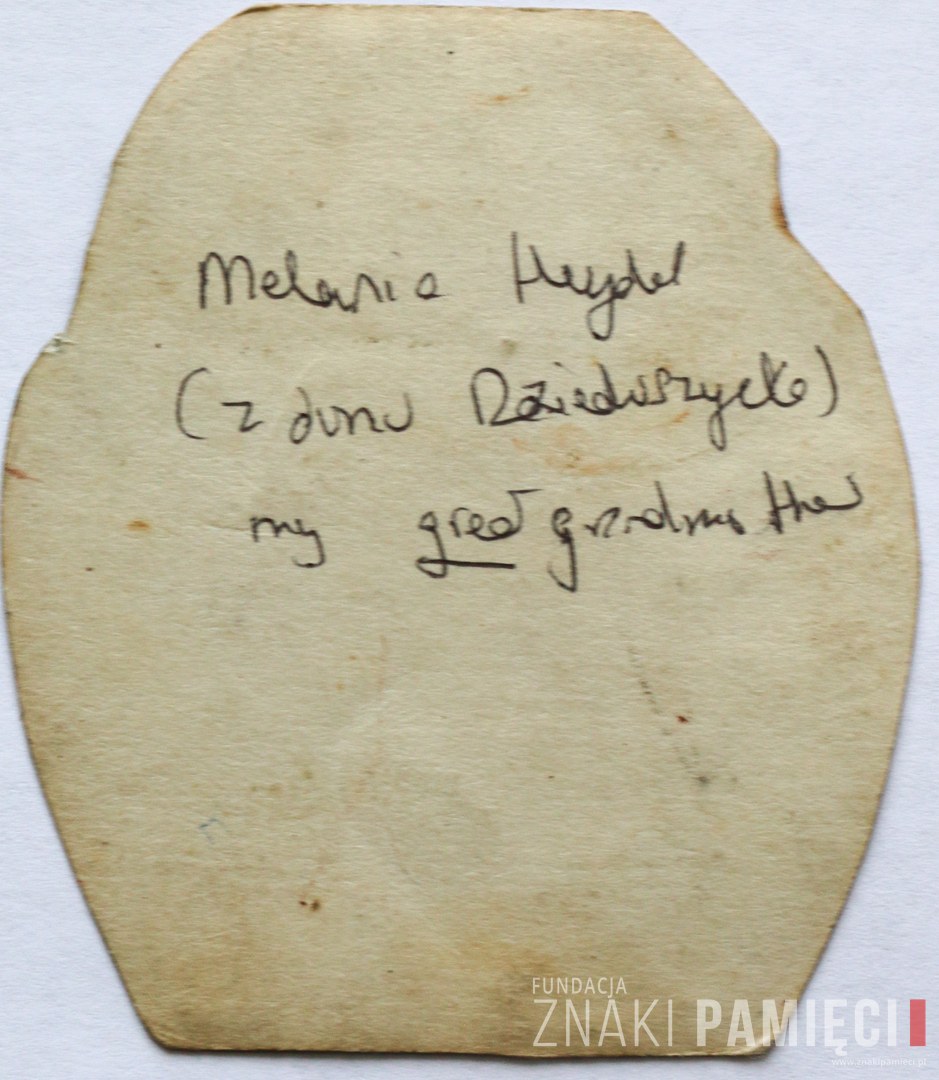 Melania Heydel
(z domu Dzieduszycka)
my great grandmother
FUNDACJA
ZNAKI PAMIĘCI
www.znakipamieci.pl